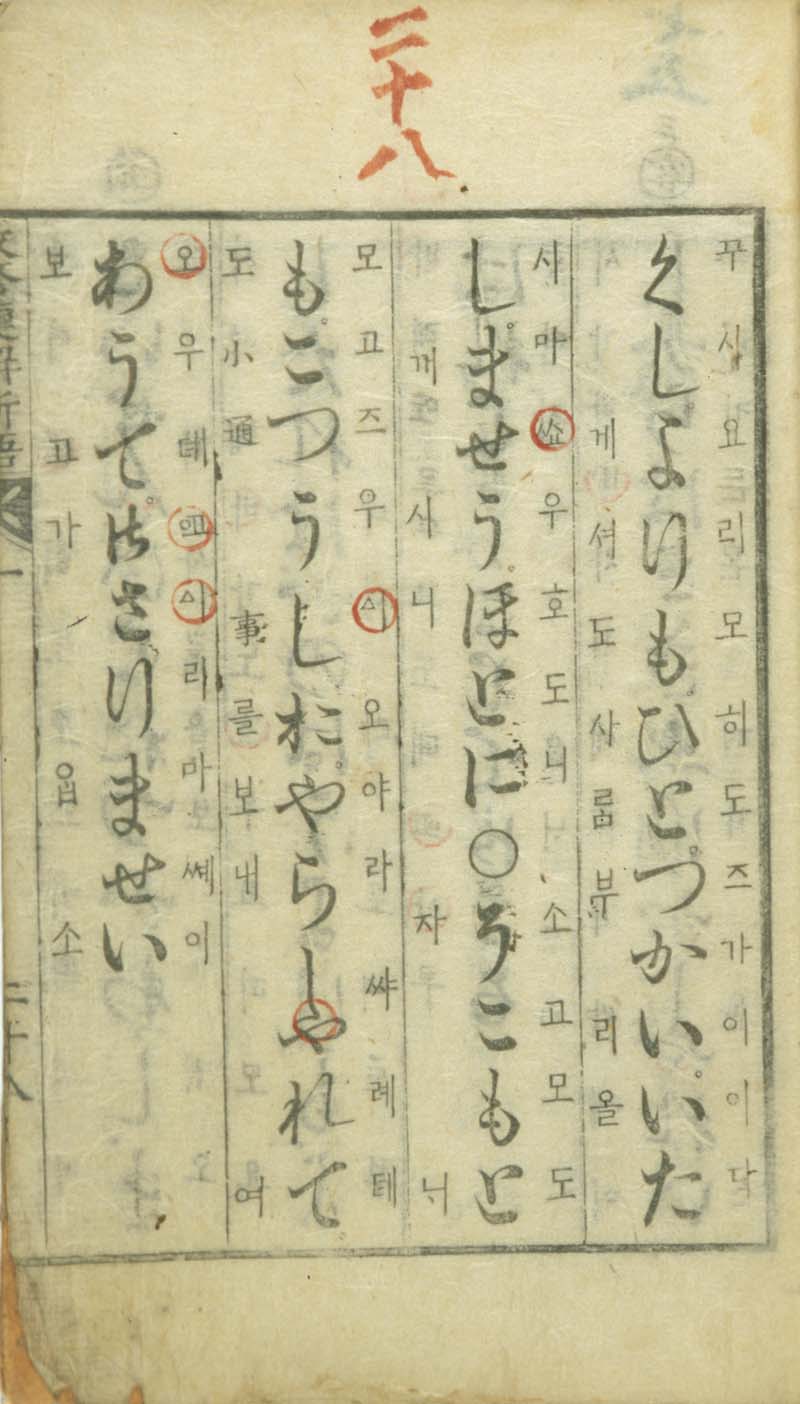 二十八
꾸시요리모히도즈가이이다
くしよりもひとつかいいた
게셔도사름부리올
시마쑈우호도니소고모도
しませうほとに○そこもと
께시니자늬
모고즈우시오야라쌰례테
もこつうしおやらしやれて
도小通事를보내여
오우테
리마쎄이
あうて
さりませい
보고가옵소
二十八